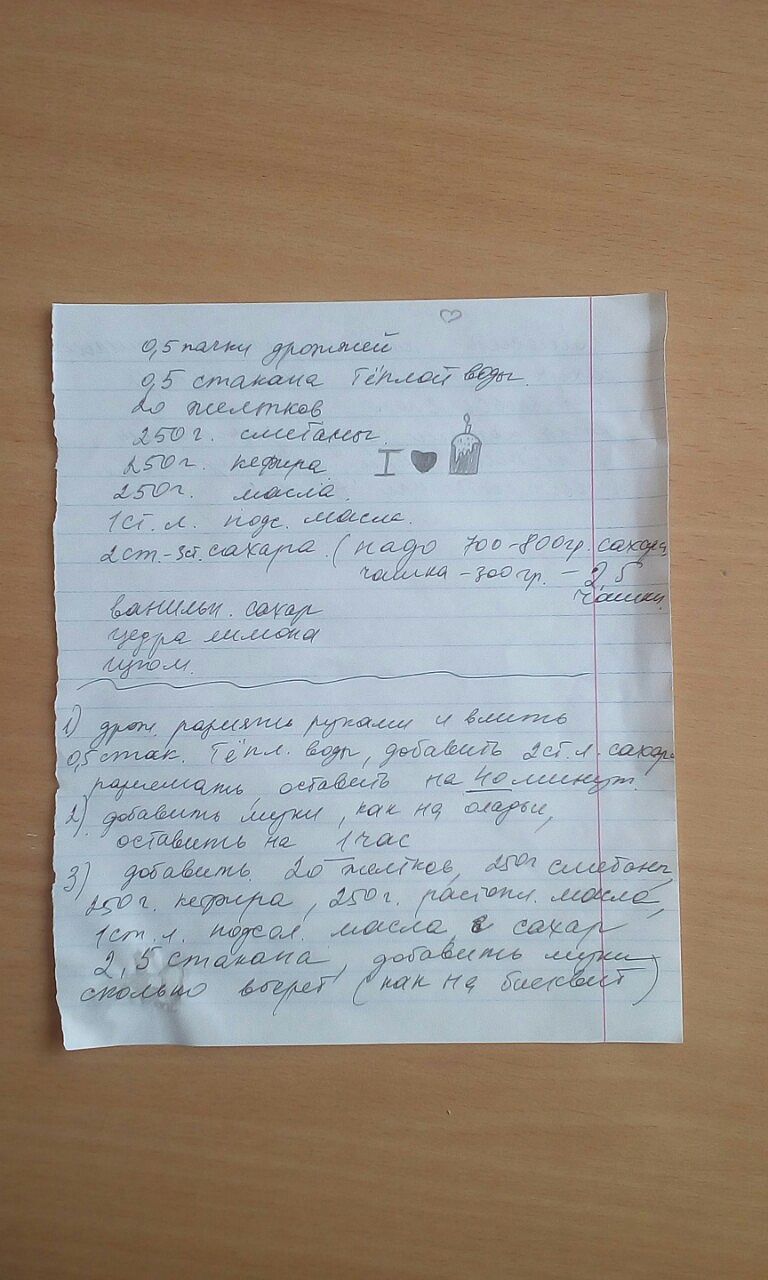 0,5 пачки дрожжей
0,5 стакана тёплой воды.
20 желтков
250 г. сметаны.
250 г. кефира
I
250 г. масла.
1 ст. л. подс. масла.
2 ст. - 3 ст. сахара. (надо 700-800 гр. сахара
чашка - 300 гр. - 2,5
чашки.
ванильн. сахар
цедра лимона
изюм.
1) дрож. размять руками и влить
0,5 стак. тёпл. воды, добавить 2 ст. л. сахара
размешать оставить на 40 минут.
2) добавить муки, как на оладьи,
оставить на 1 час
3) добавить 20 желтков, 250 г сметаны,
250 г. кефира, 250 г. растопл. масла,
1 ст. л. подсол. масла, сахар
2,5 стакана, добавить муки
сколько вберёт (как на бисквит)